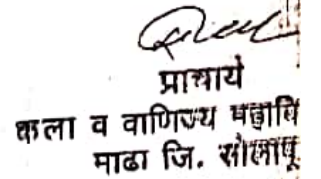 प्राचार्य
कला व वाणिज्य
माढा जि. सोलापू